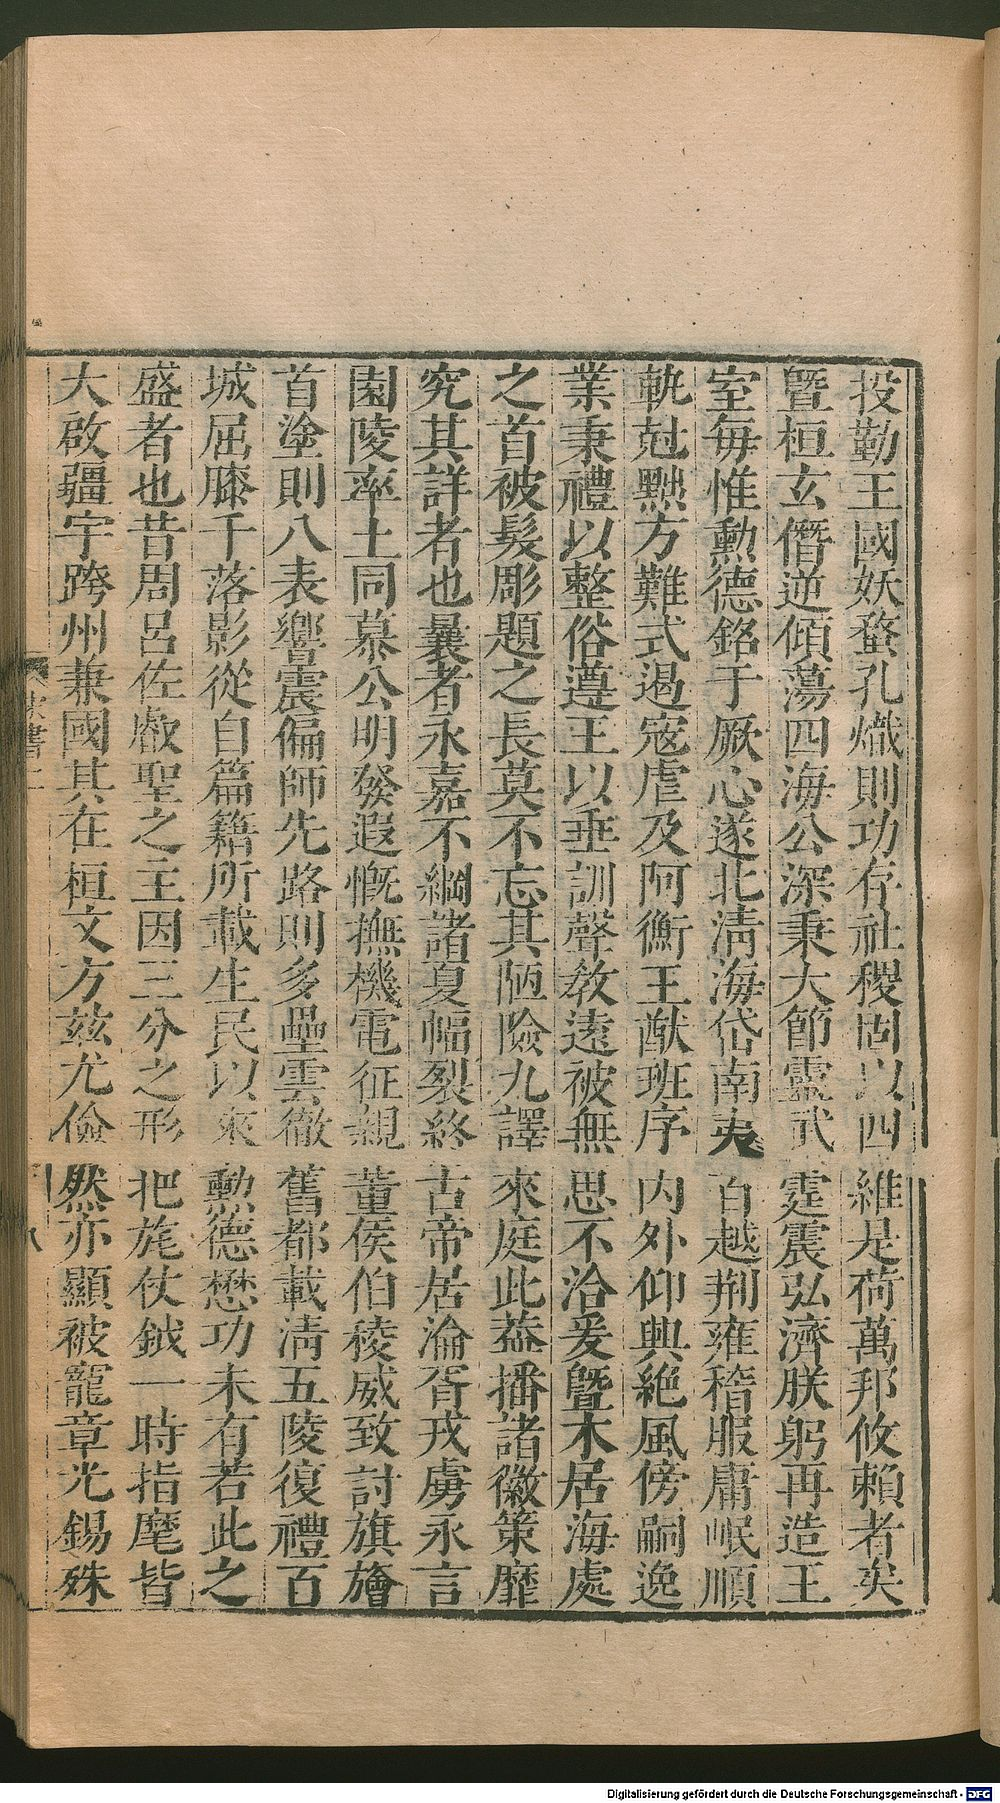 投勤王國妖蝥孔熾則功存社稷固以四維是荷萬邦攸賴者矣
曁桓玄僭逆傾蕩四海公深秉大節靈武霆震弘濟朕躬再造王
室每惟勲德銘于厥心遂北淸海岱南夷百越荆雍稽服庸岷順
軌尅黜方難式遏寇虐及阿衡王猷班序内外仰興絶風傍嗣逸
業秉禮以整俗遵王以垂訓聲敎遠被無思不洽爰曁木居海處
之首被髮彫題之長莫不忘其陋險九譯來庭此葢播諸徽策靡
究其詳者也曩者永嘉不綱諸夏幅裂終古帝居淪胥戎虜永言
園陵率土同慕公明發遐慨撫機電征親董侯伯稜威致討旗旝
首塗則八表響震偏師先路則多壘雲徹舊都載淸五陵復禮百
城屈膝千落影從自篇籍所載生民以來勲德懋功未有若此之
盛者也昔周呂佐叡聖之主因三分之形把旄仗鉞一時指麾皆
大啟疆宇跨州兼國其在桓文方兹尤儉然亦顯被寵章光錫殊
宋書二
八
Digitalisierung gefördert durch die Deutsche Forschungsgemeinschaft - DFG